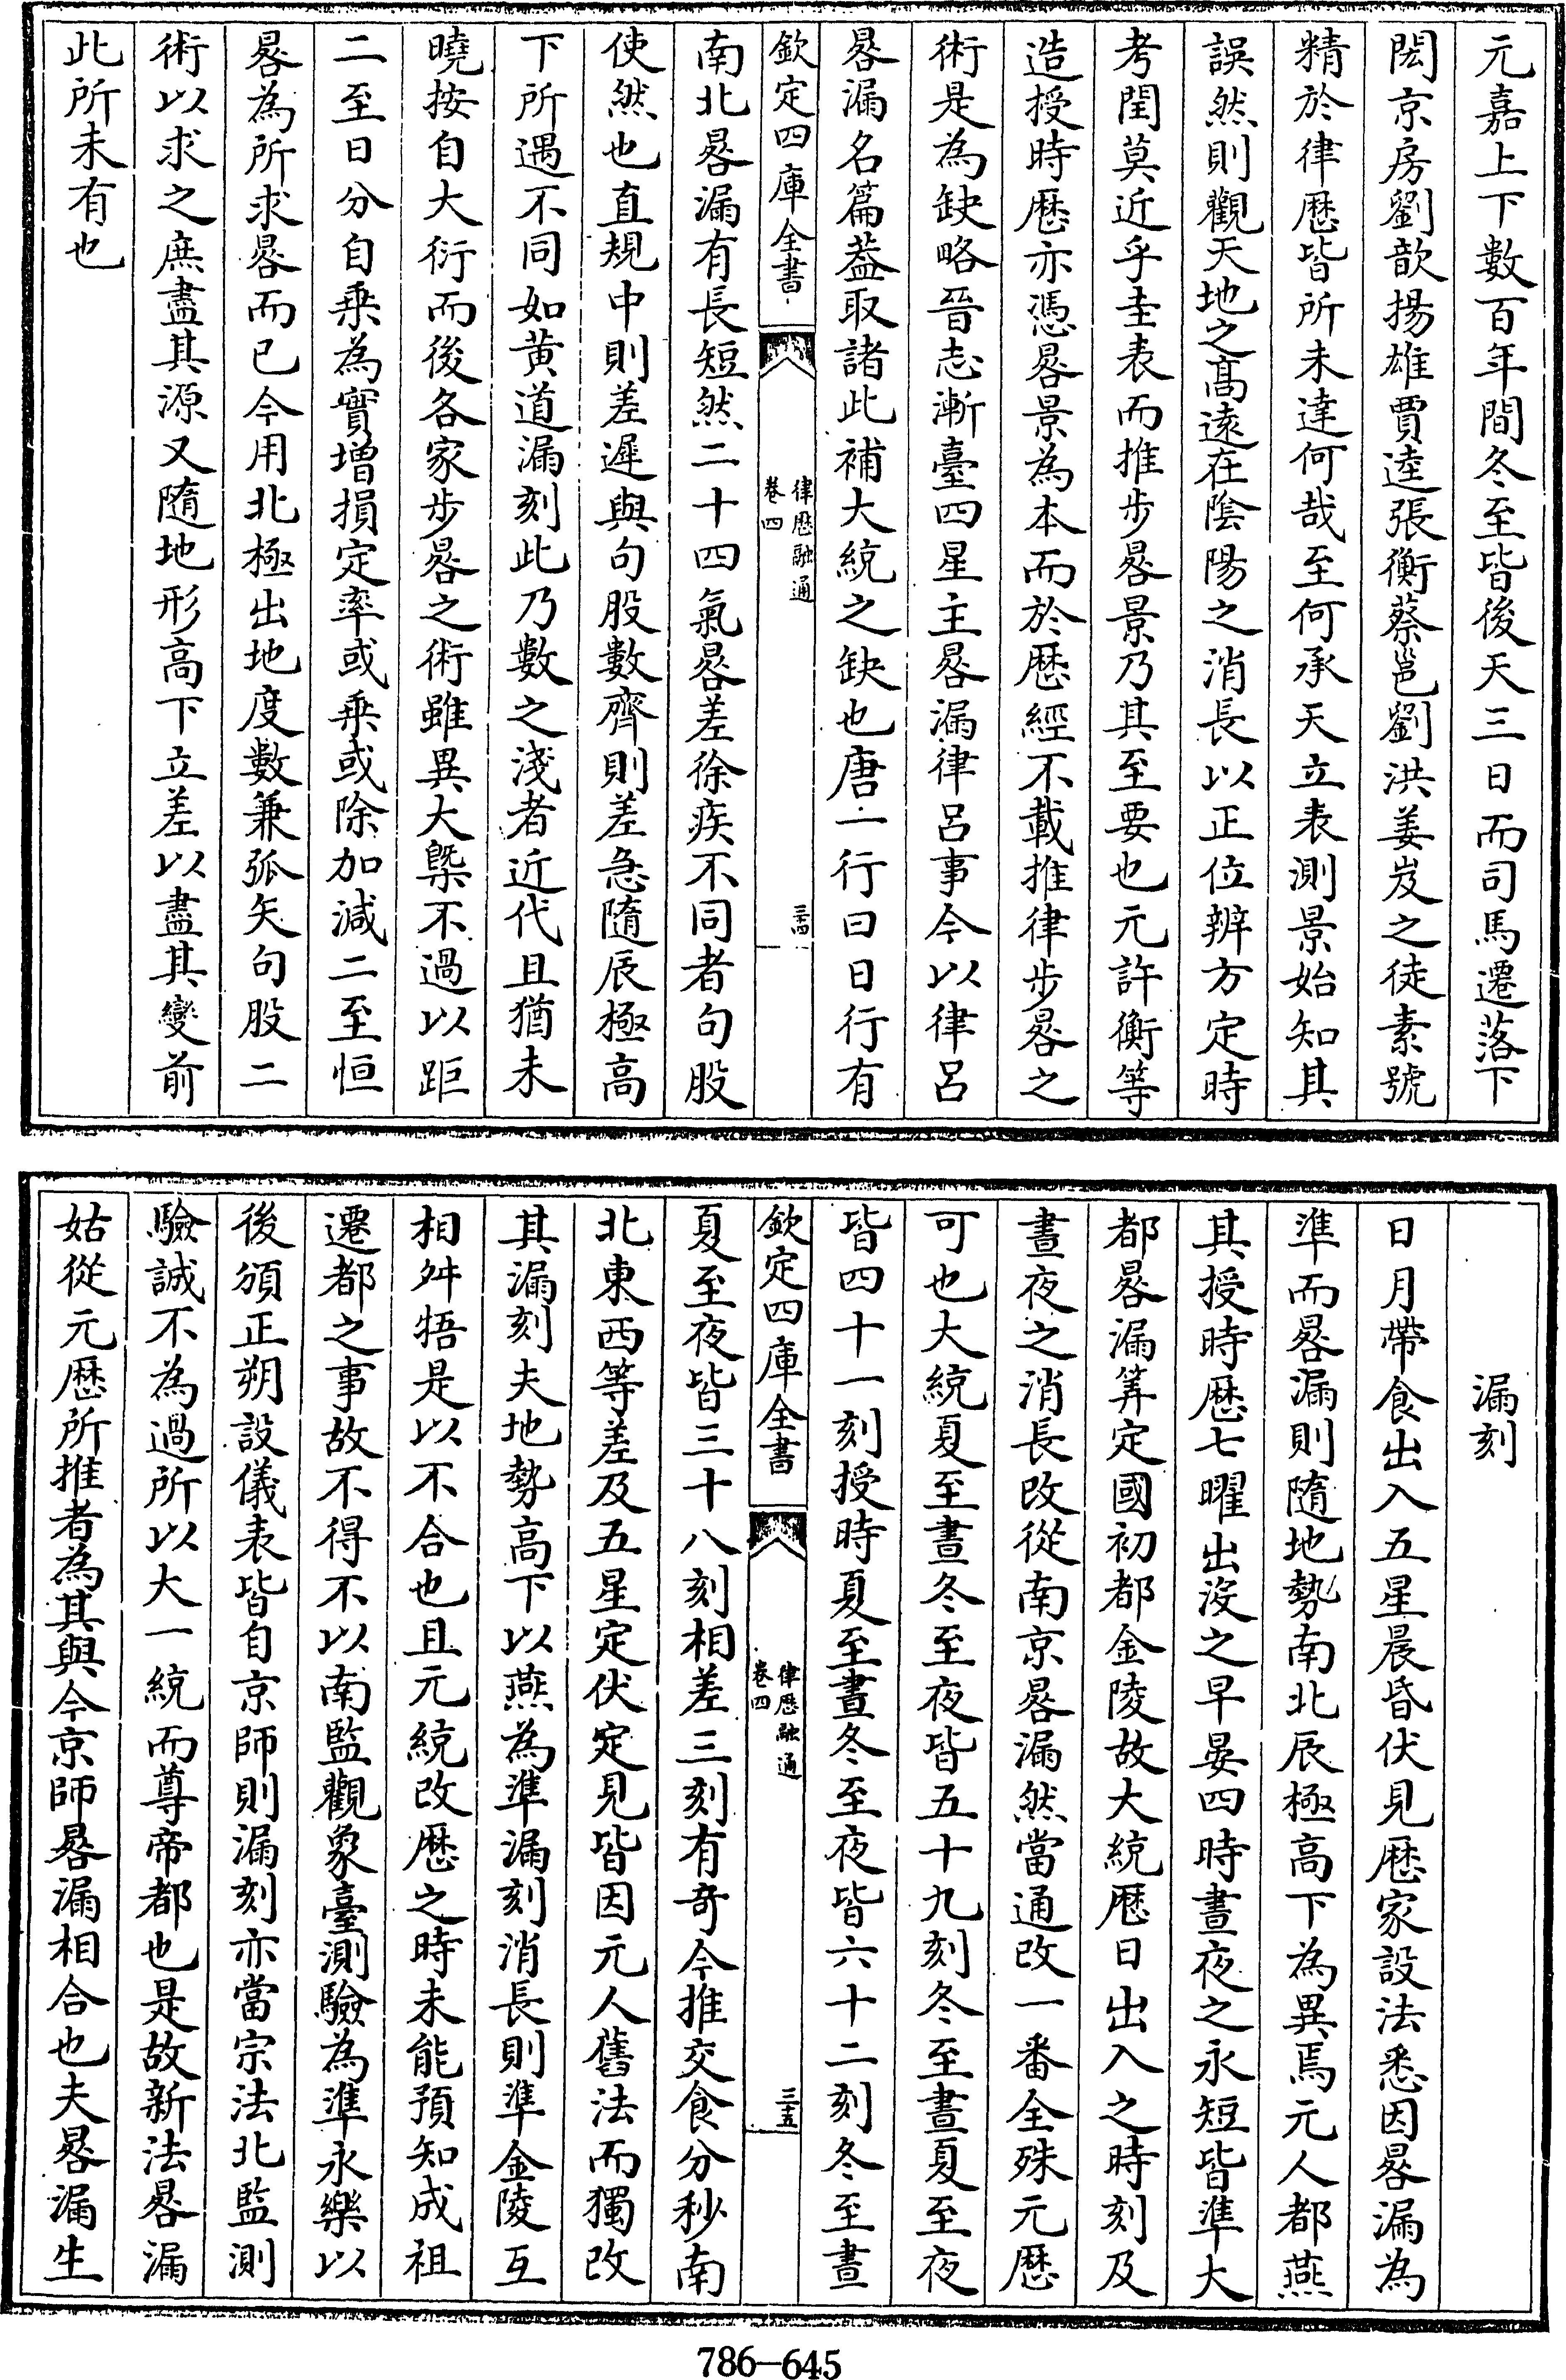 元嘉上下數百年間冬至皆後天三日而司馬遷落下
閎京房劉歆揚雄賈逵張衡蔡邕劉洪姜岌之徒素號
精於律厯皆所未達何哉至何承天立表測景始知其
誤然則觀天地之高遠在陰陽之消長以正位辨方定時
考閏莫近乎圭表而推步晷景乃其至要也元許衡等
造授時厯亦憑晷景為本而於厯經不載推律步晷之
術是為缺略晉志漸臺四星主晷漏律呂事今以律呂
晷漏名篇葢取諸此補大統之缺也唐一行曰日行有
欽定四庫全書
律厯融通
卷四
三四
南北晷漏有長短然二十四氣晷差徐疾不同者句股
使然也直規中則差遲與句股數齊則差急隨辰極高
下所遇不同如黄道漏刻此乃數之淺者近代且猶未
曉按自大衍而後各家步晷之術雖異大槩不過以距
二至日分自乗為實增損定率或乗或除加減二至恒
晷為所求晷而已今用北極出地度數兼弧矢句股二
術以求之庶盡其源又隨地形高下立差以盡其變前
此所未有也
漏刻
日月帶食出入五星晨昏伏見厯家設法悉因晷漏為
準而晷漏則隨地勢南北辰極高下為異焉元人都燕
其授時厯七曜出没之早晏四時晝夜之永短皆準大
都晷漏筭定國初都金陵故大統厯日出入之時刻及
晝夜之消長改從南京晷漏然當通改一番全殊元厯
可也大統夏至晝冬至夜皆五十九刻冬至晝夏至夜
皆四十一刻授時夏至晝冬至夜皆六十二刻冬至晝
欽定四庫全書
律厯融通
卷四
三五
夏至夜皆三十八刻相差三刻有奇今推交食分秒南
北東西等差及五星定伏定見皆因元人舊法而獨改
其漏刻夫地勢高下以燕為準漏刻消長則準金陵互
相舛牾是以不合也且元統改厯之時未能預知成祖
遷都之事故不得不以南監觀象臺測驗為準永樂以
後頒正朔設儀表皆自京師則漏刻亦當宗法北監測
驗誠不為過所以大一統而尊帝都也是故新法晷漏
姑從元厯所推者為其與今京師晷漏相合也夫晷漏生
786-645